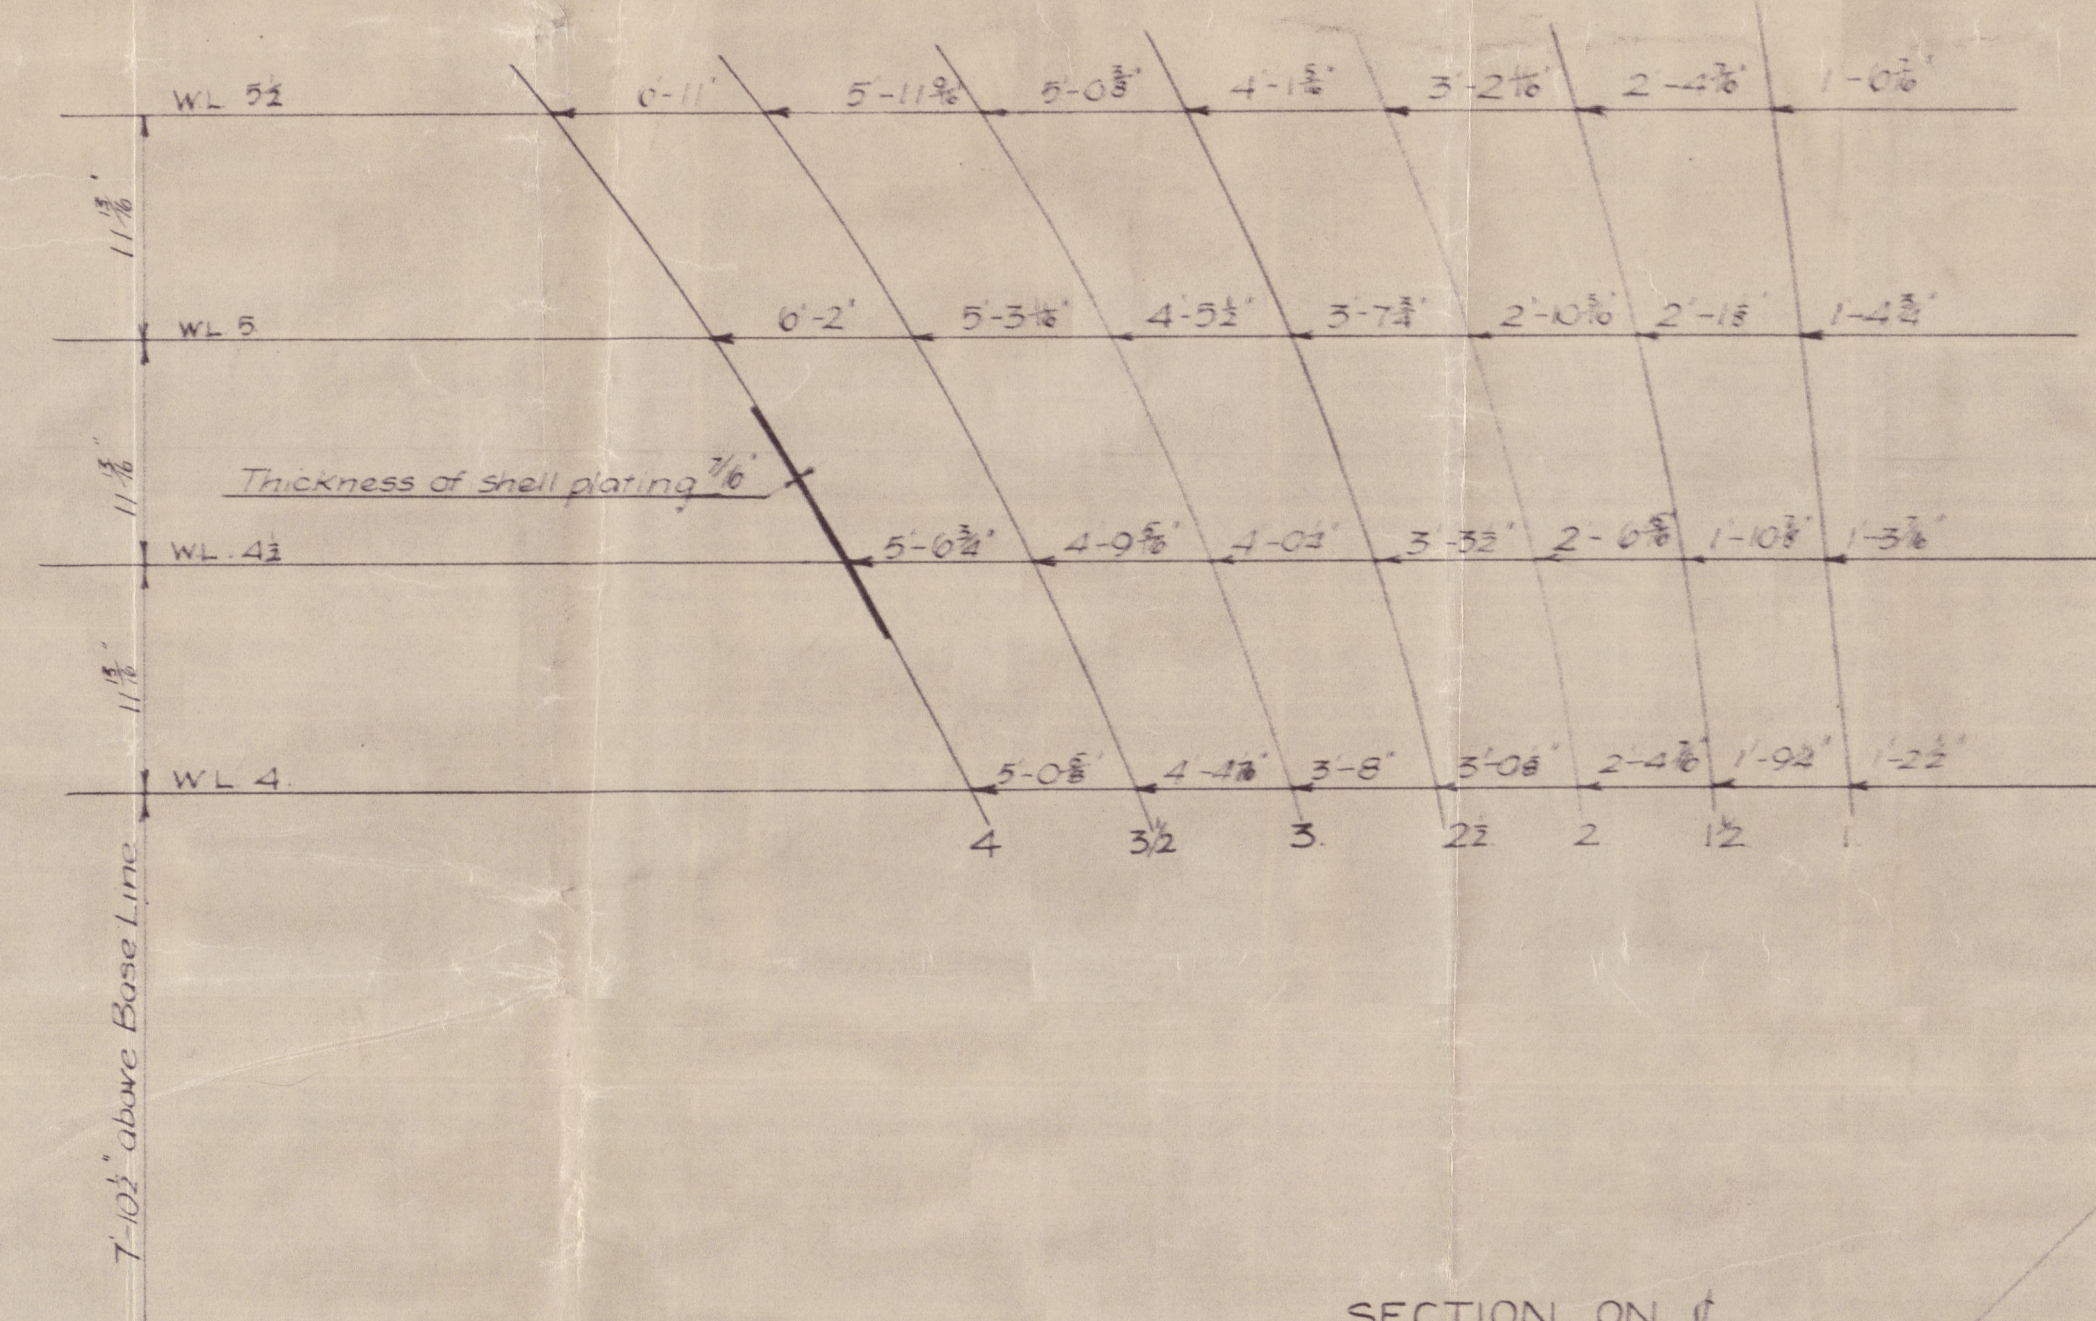 WL 5½ 6'-11" 5'-11 9/16" 5'-0 3/8" 4'-1 5/16" 3'-2 11/16" 2'-4 7/16" 1'-6 7/16"
11 13/16"
WL 5. 6'-2" 5'-3 1/16" 4'-5½" 3'-7¾" 2'-10 3/16" 2'-1⅛" 1'-4¾"
Thickness of shell plating 7/16"
11 13/16"
WL. 4½ 5'-6¾" 4'-9 5/16" 4'-0¼" 3'-3½" 1'-10⅞" 1'-3 7/16"
11 13/16"
WL 4. 5'-0⅝" 3'-8" 3'-0⅛" 2'-4 7/16" 1'-9¼" 1'-2½"
4 3½ 3. 2½ 2 1½ 1.
7'-10½" above Base Line
SECTION ON ℄